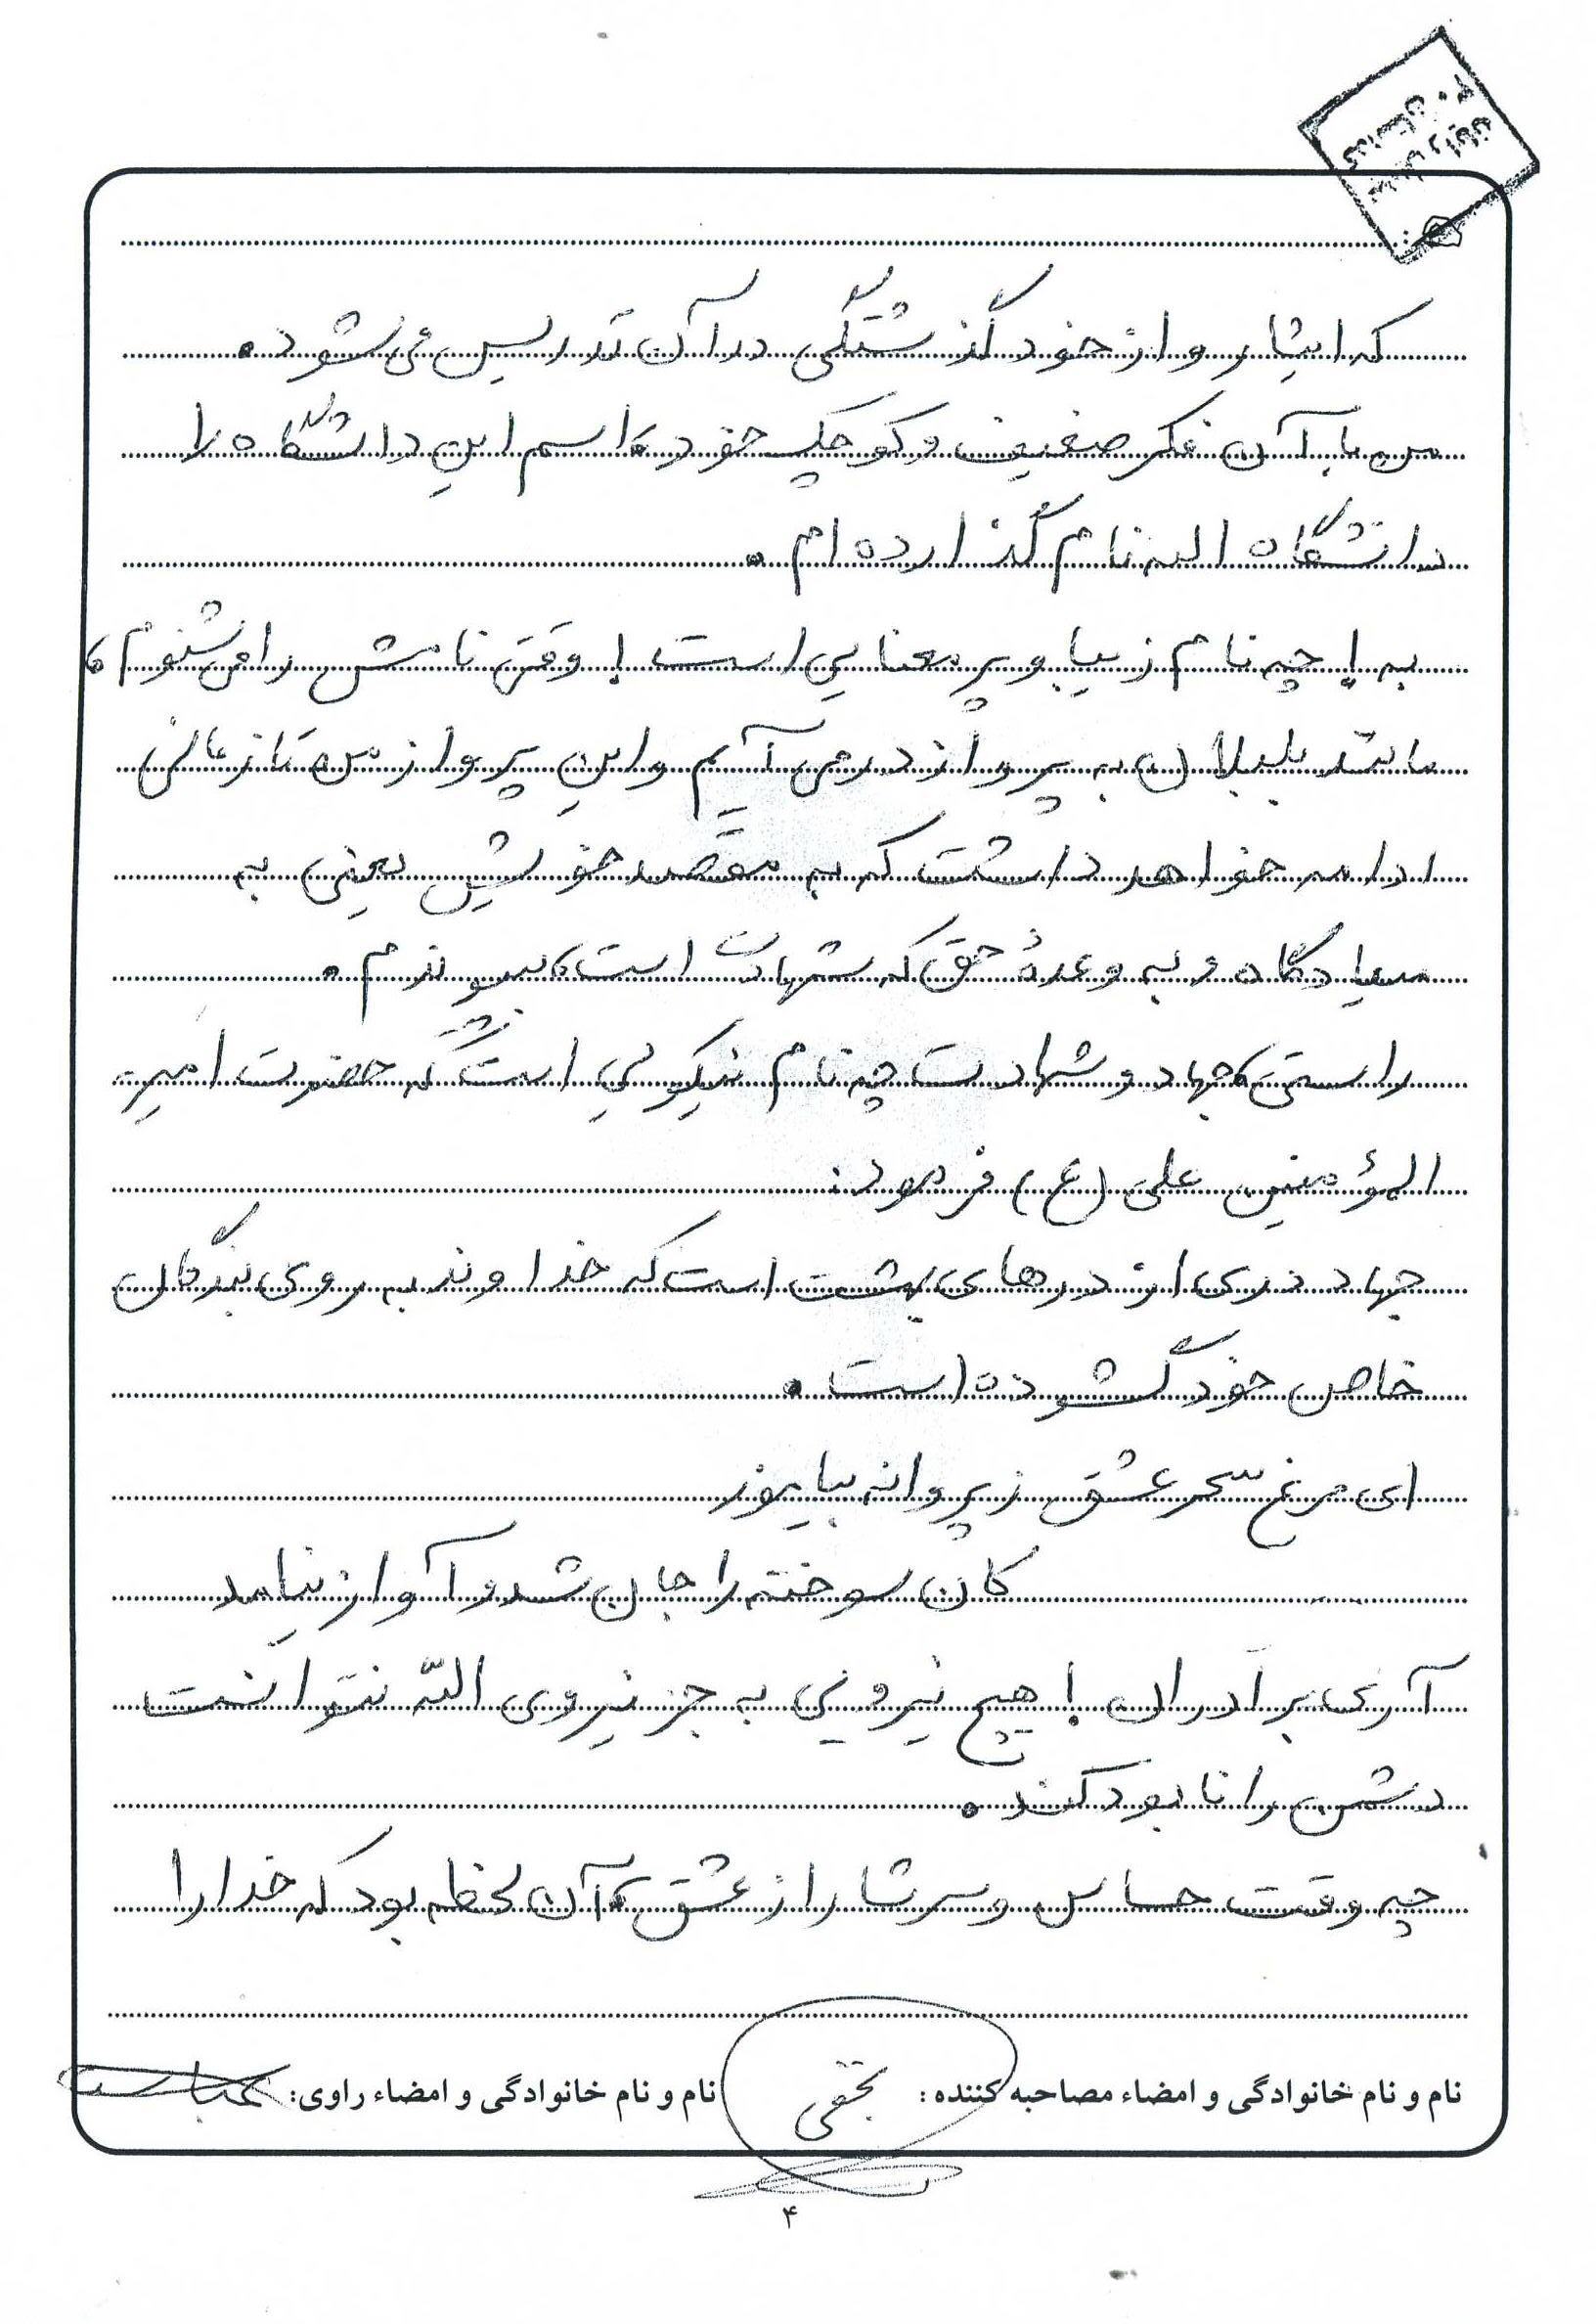 که ایثار و از خود گذشتگی در آن تدریس می‌شود.
من با آن فکر ضعیف و کوچک خود، اسم این دانشگاه را
دانشگاه الله نام گذارده‌ام.
به! چه نام زیبا و پر معنایی است! وقتی نامش را می‌شنوم،
مانند بلبلان به پرواز در می‌آیم و این پرواز من تا زمانی
ادامه خواهد داشت که به مقصد خویش یعنی به
میعادگاه و به وعدهٔ حق که شهادت است، بپیوندم.
راستی، جهاد و شهادت چه نام نیکویی است که حضرت امیر
المؤمنین علی (ع) فرمود:
جهاد دری از درهای بهشت است که خداوند به روی بندگان
خاص خود گشوده است.
ای مرغ سحر عشق ز پروانه بیاموز
کان سوخته را جان شد و آواز نیامد
آری برادران! هیچ نیرویی به جز نیروی اللّه نتوانست
دشمن را نابود کند.
چه وقت حساس و سرشار از عشق، آن لحظه بود که خدا را
نام و نام خانوادگی و امضاء مصاحبه کننده: نام و نام خانوادگی و امضاء راوی:
۴